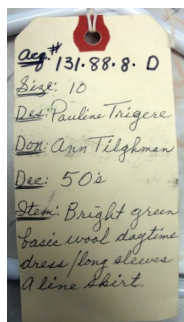 acq.# 131.88.8. D
Size: 10
Des: Pauline Trigere
Don: Ann Tilghman
Dec: 50's
Item: Bright green
basic wool daytime
dress/long sleeves
A line skirt.